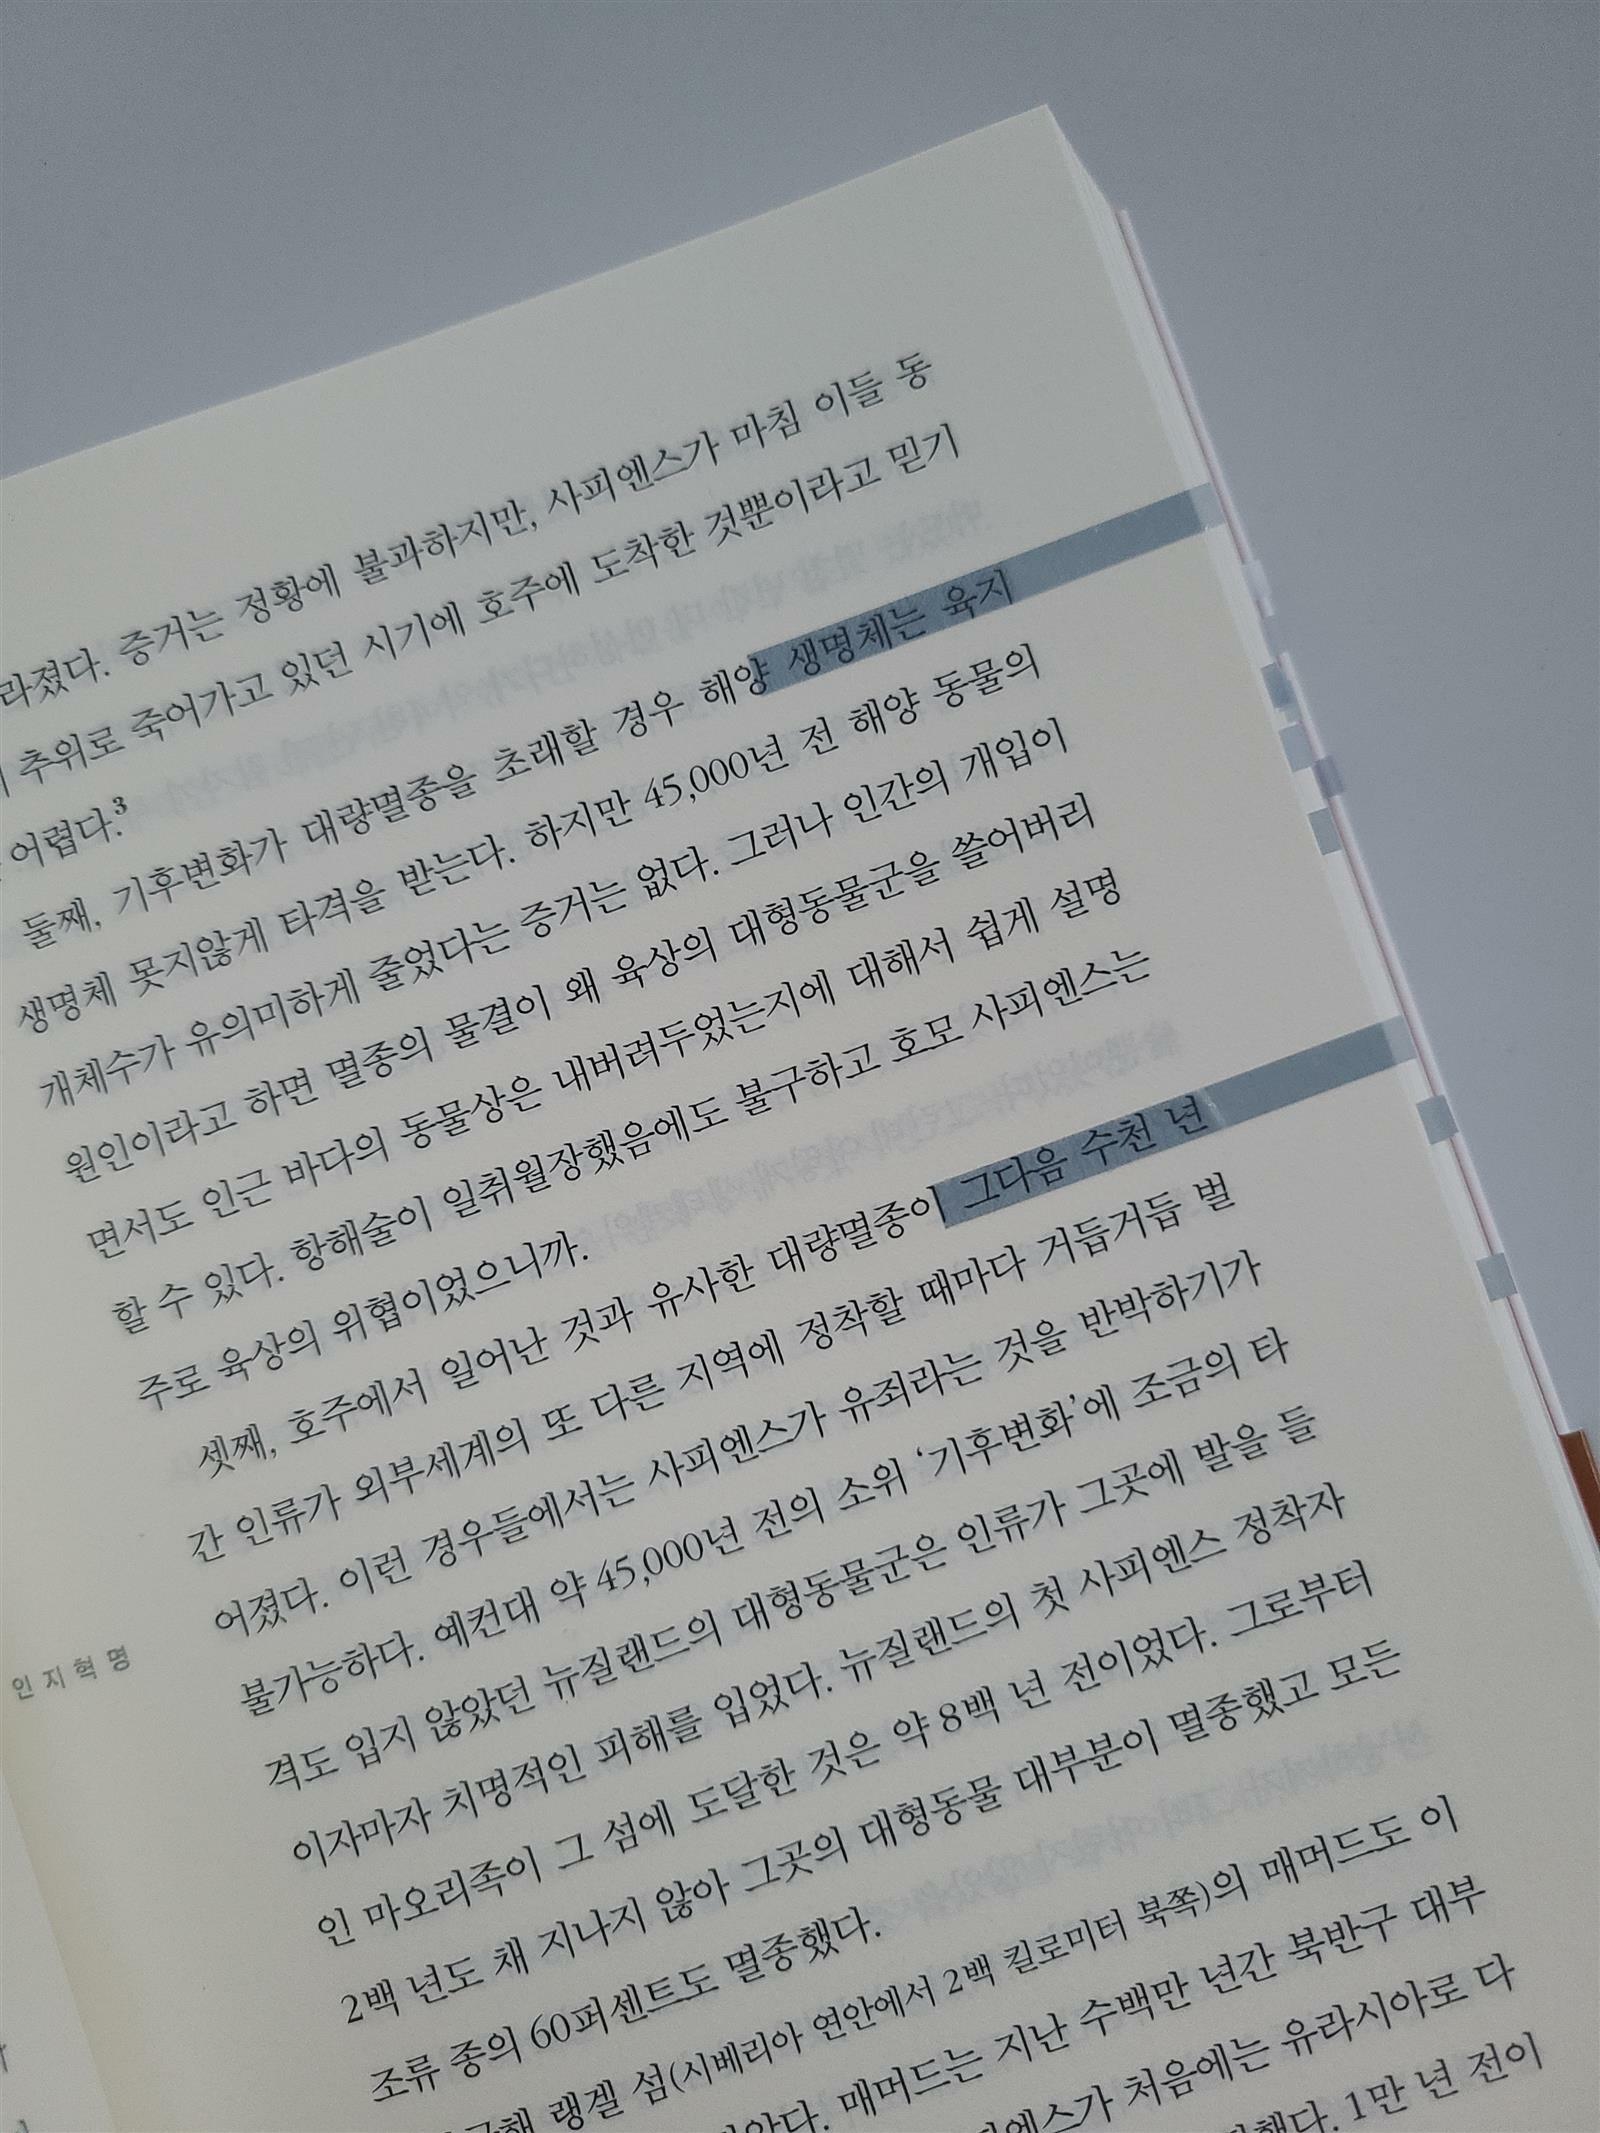 라졌다. 증거는 정황에 불과하지만, 사피엔스가 마침 이들 동
추위로 죽어가고 있던 시기에 호주에 도착한 것뿐이라고 믿기
어렵다.³
둘째, 기후변화가 대량멸종을 초래할 경우 해양 생명체는 육지
생명체 못지않게 타격을 받는다. 하지만 45,000년 전 해양 동물의
개체수가 유의미하게 줄었다는 증거는 없다. 그러나 인간의 개입이
원인이라고 하면 멸종의 물결이 왜 육상의 대형동물군을 쓸어버리
면서도 인근 바다의 동물상은 내버려두었는지에 대해서 쉽게 설명
할 수 있다. 항해술이 일취월장했음에도 불구하고 호모 사피엔스는
주로 육상의 위협이었으니까.
셋째, 호주에서 일어난 것과 유사한 대량멸종이 그다음 수천 년
간 인류가 외부세계의 또 다른 지역에 정착할 때마다 거듭거듭 벌
어졌다. 이런 경우들에서는 사피엔스가 유죄라는 것을 반박하기가
불가능하다. 예컨대 약 45,000년 전의 소위 ‘기후변화’에 조금의 타
격도 입지 않았던 뉴질랜드의 대형동물군은 인류가 그곳에 발을 들
이자마자 치명적인 피해를 입었다. 뉴질랜드의 첫 사피엔스 정착자
인 마오리족이 그 섬에 도달한 것은 약 8백 년 전이었다. 그로부터
2백 년도 채 지나지 않아 그곳의 대형동물 대부분이 멸종했고 모든
조류 종의 60퍼센트도 멸종했다.
랭겔 섬(시베리아 연안에서 2백 킬로미터 북쪽)의 매머드도 이
매머드는 지난 수백만 년간 북반구 대부
처음에는 유라시아로 다
1만 년 전이
인지혁명